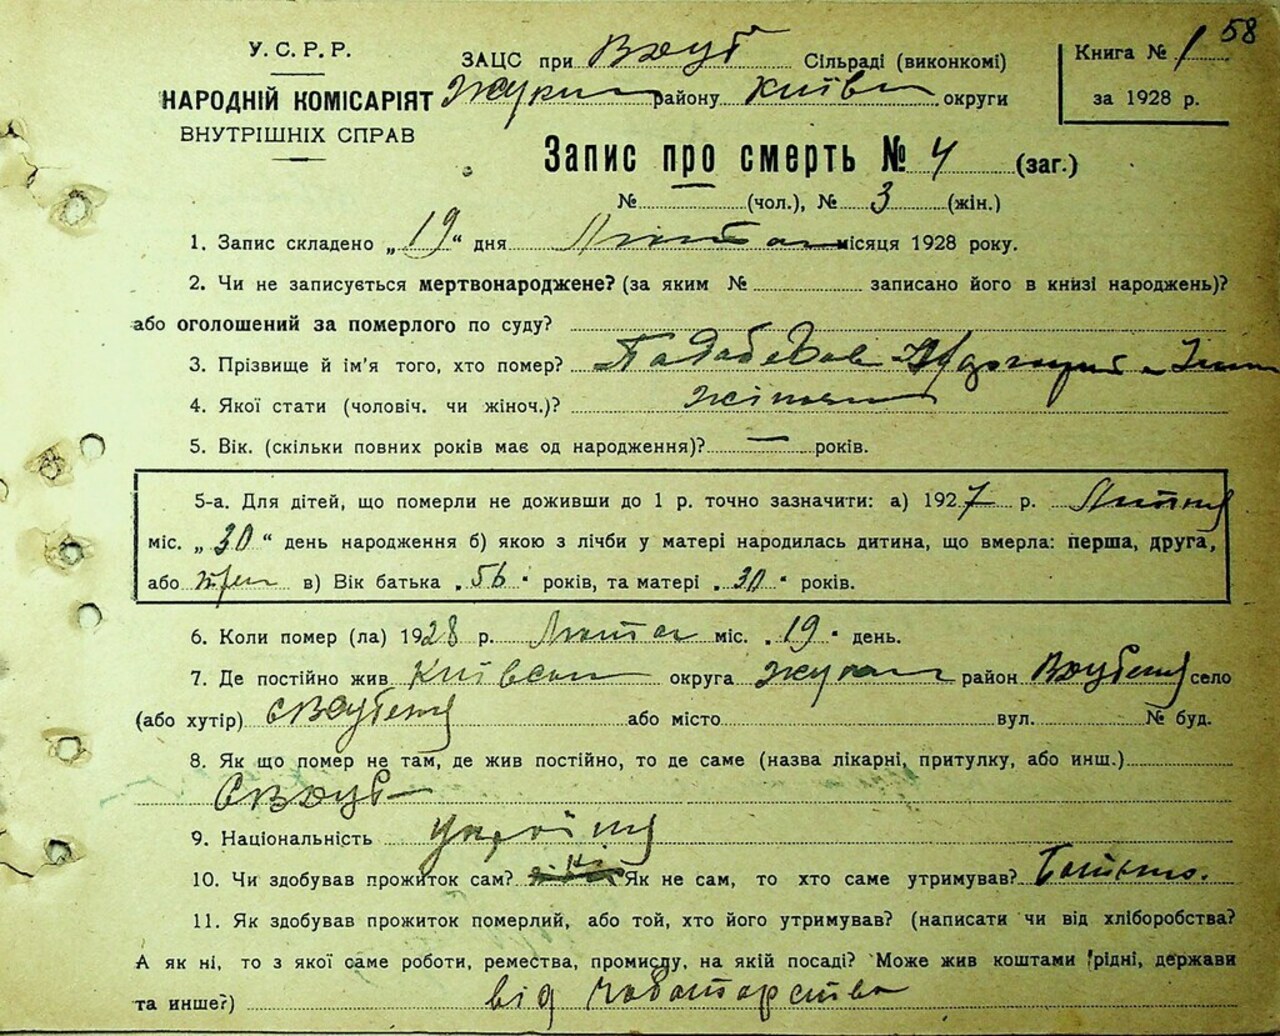 58
У. С. Р. Р.
НАРОДНІЙ КОМІСАРІЯТ
ВНУТРІШНІХ СПРАВ
ЗАЦС при Вхуб Сільраді (виконкомі)
Жукин району Київ округи
Книга № 1
за 1928 р.
Запис про смерть № 4 (заг.)
№ — (чол.), № 3 (жін.)
1. Запис складено „19“ дня Лютого місяця 1928 року.
2. Чи не записується мертвонароджене? (за яким № записано його в книзі народжень)?
або оголошений за померлого по суду?
3. Прізвище й ім'я того, хто помер?
4. Якої стати (чоловіч. чи жіноч.)? жіноч
5. Вік. (скільки повних років має од народження)? — років.
5-а. Для дітей, що померли не доживши до 1 р. точно зазначити: а) 1927 р.
міс. „30“ день народження б) якою з лічби у матері народилась дитина, що вмерла: перша, друга,
або в) Вік батька „56“ років, та матері „30“ років.
6. Коли помер (ла) 1928 р. Лютого міс. „19“ день.
7. Де постійно жив Київськ округа Жукин район село
(або хутір) або місто вул. № буд.
8. Як що помер не там, де жив постійно, то де саме (назва лікарні, притулку, або инш.)
9. Національність
10. Чи здобував прожиток сам? ні Як не сам, то хто саме утримував? Батько.
11. Як здобував прожиток померлий, або той, хто його утримував? (написати чи від хліборобства?
А як ні, то з якої саме роботи, ремества, промислу, на якій посаді? Може жив коштами рідні, держави
та инше?) від чоботарства